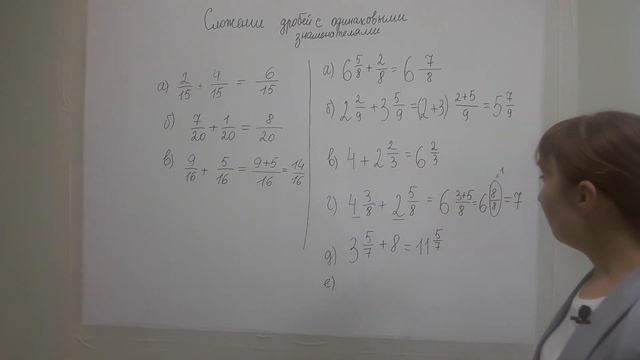 Сложение дробей с одинаковыми
знаменателями
а) 2/15 + 4/15 = 6/15
б) 7/20 + 1/20 = 8/20
в) 9/16 + 5/16 = 9+5/16 = 14/16
а) 6 5/8 + 2/8 = 6 7/8
б) 2 2/9 + 3 5/9 = (2+3) 2+5/9 = 5 7/9
в) 4 + 2 2/3 = 6 2/3
г) 4 3/8 + 2 5/8 = 6 3+5/8 = 6 8/8 = 7
1
д) 3 5/7 + 8 = 11 5/7
е)